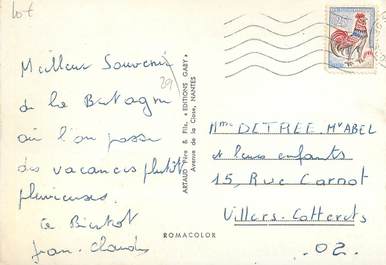 lot
Meilleur Souvenir
29
de la Bretagne
où l'on passe
des vacances plutôt
pluvieuses.
a Bientot
Jean-Claude
ARTAUD Père & Fils, «EDITIONS GABY»
Avenue de la Close, NANTES
ROMACOLOR
Mme DETREE Mr ABEL
et leurs enfants
15, Rue Carnot
Villers-Cotterets
-02.